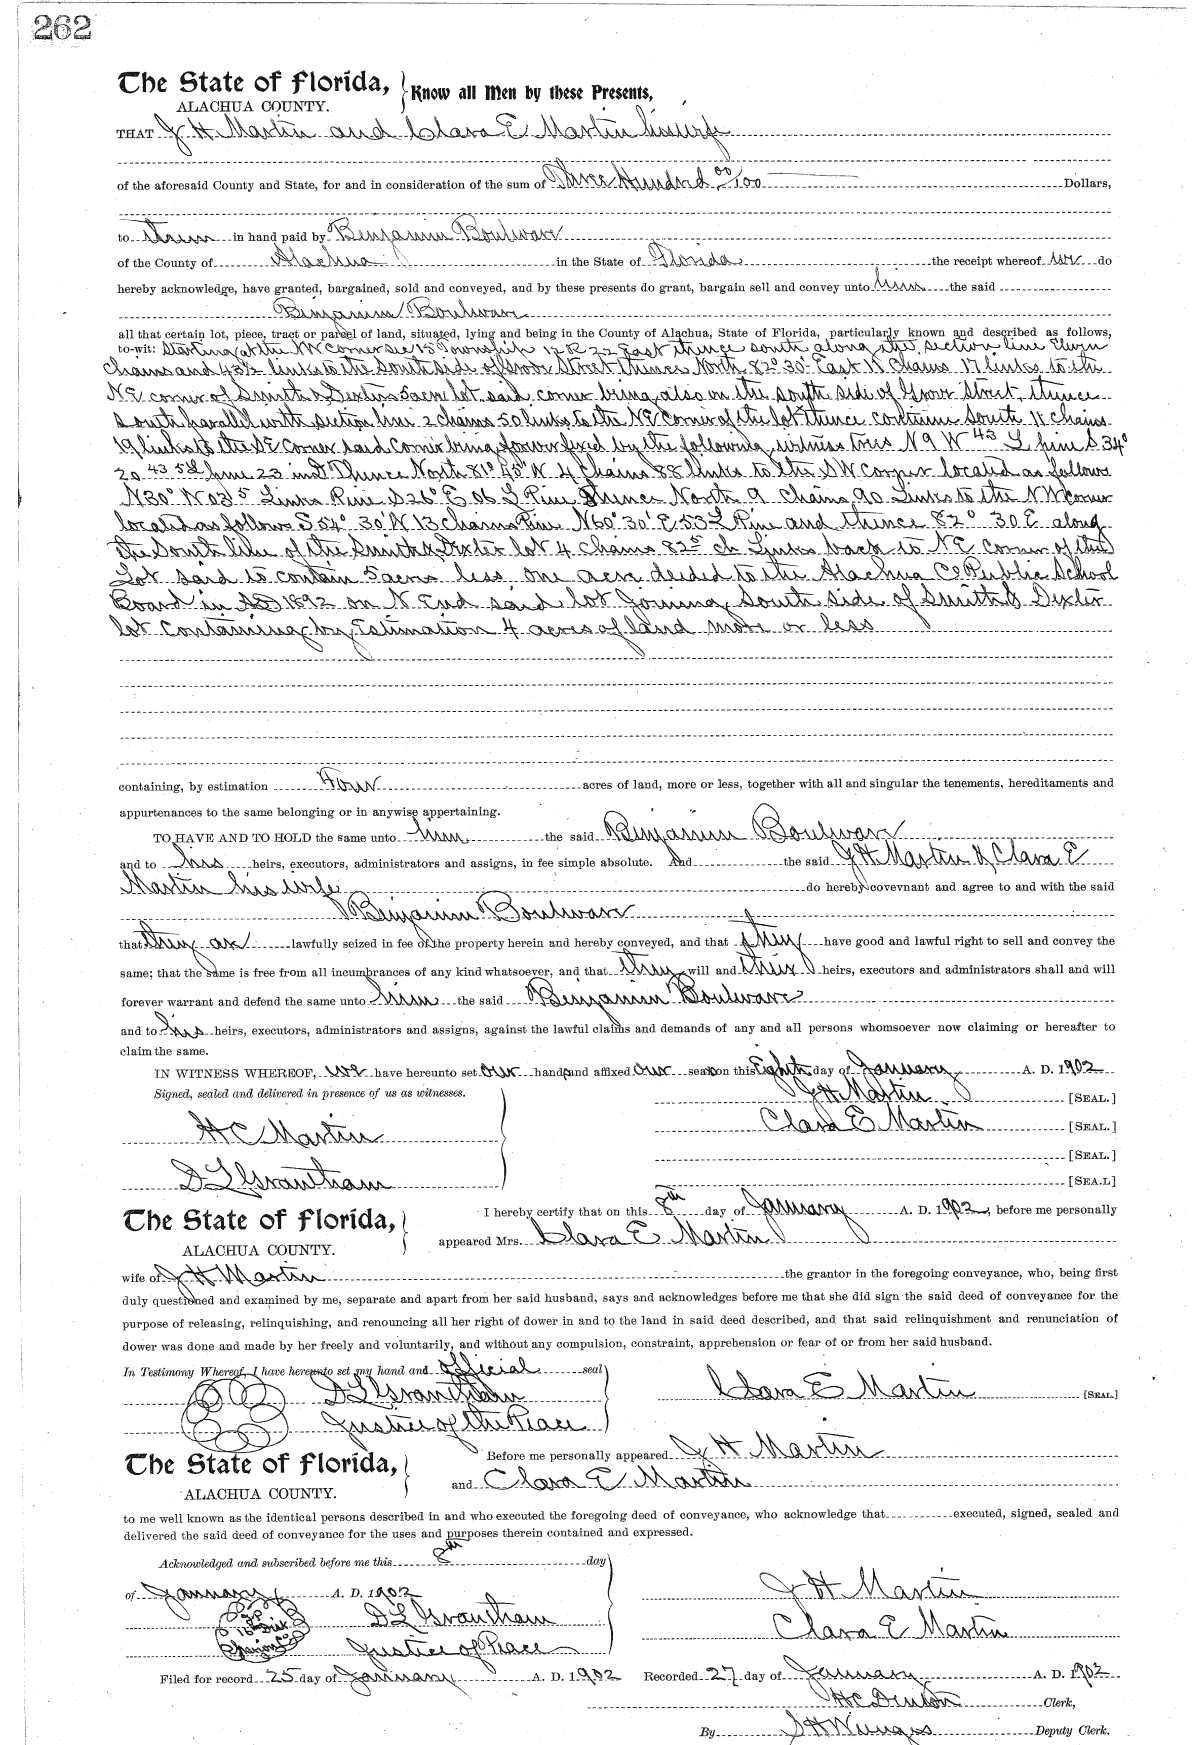 262
The State of Florida,
ALACHUA COUNTY.
Know all Men by these Presents,
THAT J H Martin and Clara E Martin his wife
of the aforesaid County and State, for and in consideration of the sum of Three Hundred 00/100 Dollars,
to them in hand paid by Benjamin Boulware
of the County of Alachua in the State of Florida the receipt whereof we do
hereby acknowledge, have granted, bargained, sold and conveyed, and by these presents do grant, bargain sell and convey unto him the said
Benjamin Boulware
all that certain lot, piece, tract or parcel of land, situated, lying and being in the County of Alachua, State of Florida, particularly known and described as follows,
to-wit: Starting at the NW corner sec 15 Township 12 R 22 East thence south along the section line Eleven
chains and 43½ links to the South side of Grove Street thence North 82° 30' East 18 Chains 17 links to the
N.E corner of Smith & Dexters 5 acre lot. said corner being also on the south side of Grove Street, thence
South parallel with section line 2 chains 50 links to the N.E Corner of the lot thence continue South 11 chains
19 links to the S.E Corner said Corner being forever fixed by the following witness trees N 9 W 43 L pine S 34°
20 43 Thence North 81° 45' W 4 Chains 88 links to the SW Corner located as follows
N30° Links Pine S 26° E 06 L Pine Thence North 9 Chains 90 Links to the NW corner
located as follows S 54° 30' W 13 chains Pine N60° 30' E 53 L Pine and thence 82° 30 E along
the South line of the Smith & Dexter lot 4 Chains 82 5 ch Links back to N.E corner of the
Lot said to contain 5 acres less one acre deeded to the Alachua Co Public School
Board in AD 1892 on N End said lot Joining South side of Smith & Dexter
lot Containing by Estimation 4 acres of land more or less
containing, by estimation Four acres of land, more or less, together with all and singular the tenements, hereditaments and
appurtenances to the same belonging or in anywise appertaining.
TO HAVE AND TO HOLD the same unto him the said Benjamin Boulware
and to his heirs, executors, administrators and assigns, in fee simple absolute. And the said J H Martin & Clara E
Martin his wife do hereby covevnant and agree to and with the said
Benjamin Boulware
that they are lawfully seized in fee of the property herein and hereby conveyed, and that they have good and lawful right to sell and convey the
same; that the same is free from all incumbrances of any kind whatsoever, and that they will and their heirs, executors and administrators shall and will
forever warrant and defend the same unto him the said Benjamin Boulware
and to his heirs, executors, administrators and assigns, against the lawful claims and demands of any and all persons whomsoever now claiming or hereafter to
claim the same.
IN WITNESS WHEREOF, we have hereunto set our hands and affixed our seals on this Eighth day of January A. D. 1902
Signed, sealed and delivered in presence of us as witnesses.
J H Martin [SEAL.]
H C Martin
Clara E Martin [SEAL.]
[SEAL.]
D L Grantham
[SEA.L]
The State of Florida,
ALACHUA COUNTY.
I hereby certify that on this 8th day of January A. D. 1902, before me personally
appeared Mrs. Clara E Martin
wife of J H Martin the grantor in the foregoing conveyance, who, being first
duly questioned and examined by me, separate and apart from her said husband, says and acknowledges before me that she did sign the said deed of conveyance for the
purpose of releasing, relinquishing, and renouncing all her right of dower in and to the land in said deed described, and that said relinquishment and renunciation of
dower was done and made by her freely and voluntarily, and without any compulsion, constraint, apprehension or fear of or from her said husband.
In Testimony Whereof, I have hereunto set my hand and official seal
D L Grantham
Clara E Martin [SEAL.]
Justice of the Peace
The State of Florida,
ALACHUA COUNTY.
Before me personally appeared J H Martin
and Clara E Martin
to me well known as the identical persons described in and who executed the foregoing deed of conveyance, who acknowledge that executed, signed, sealed and
delivered the said deed of conveyance for the uses and purposes therein contained and expressed.
Acknowledged and subscribed before me this 8th day
of January A. D. 1902
J H Martin
J P
16th Dist
Marion Co
D L Grantham
Clara E Martin
Justice of Peace
Filed for record 25 day of January A. D. 1902
Recorded 27 day of January A. D. 1902
H C Denton Clerk,
By S H Wienges Deputy Clerk.